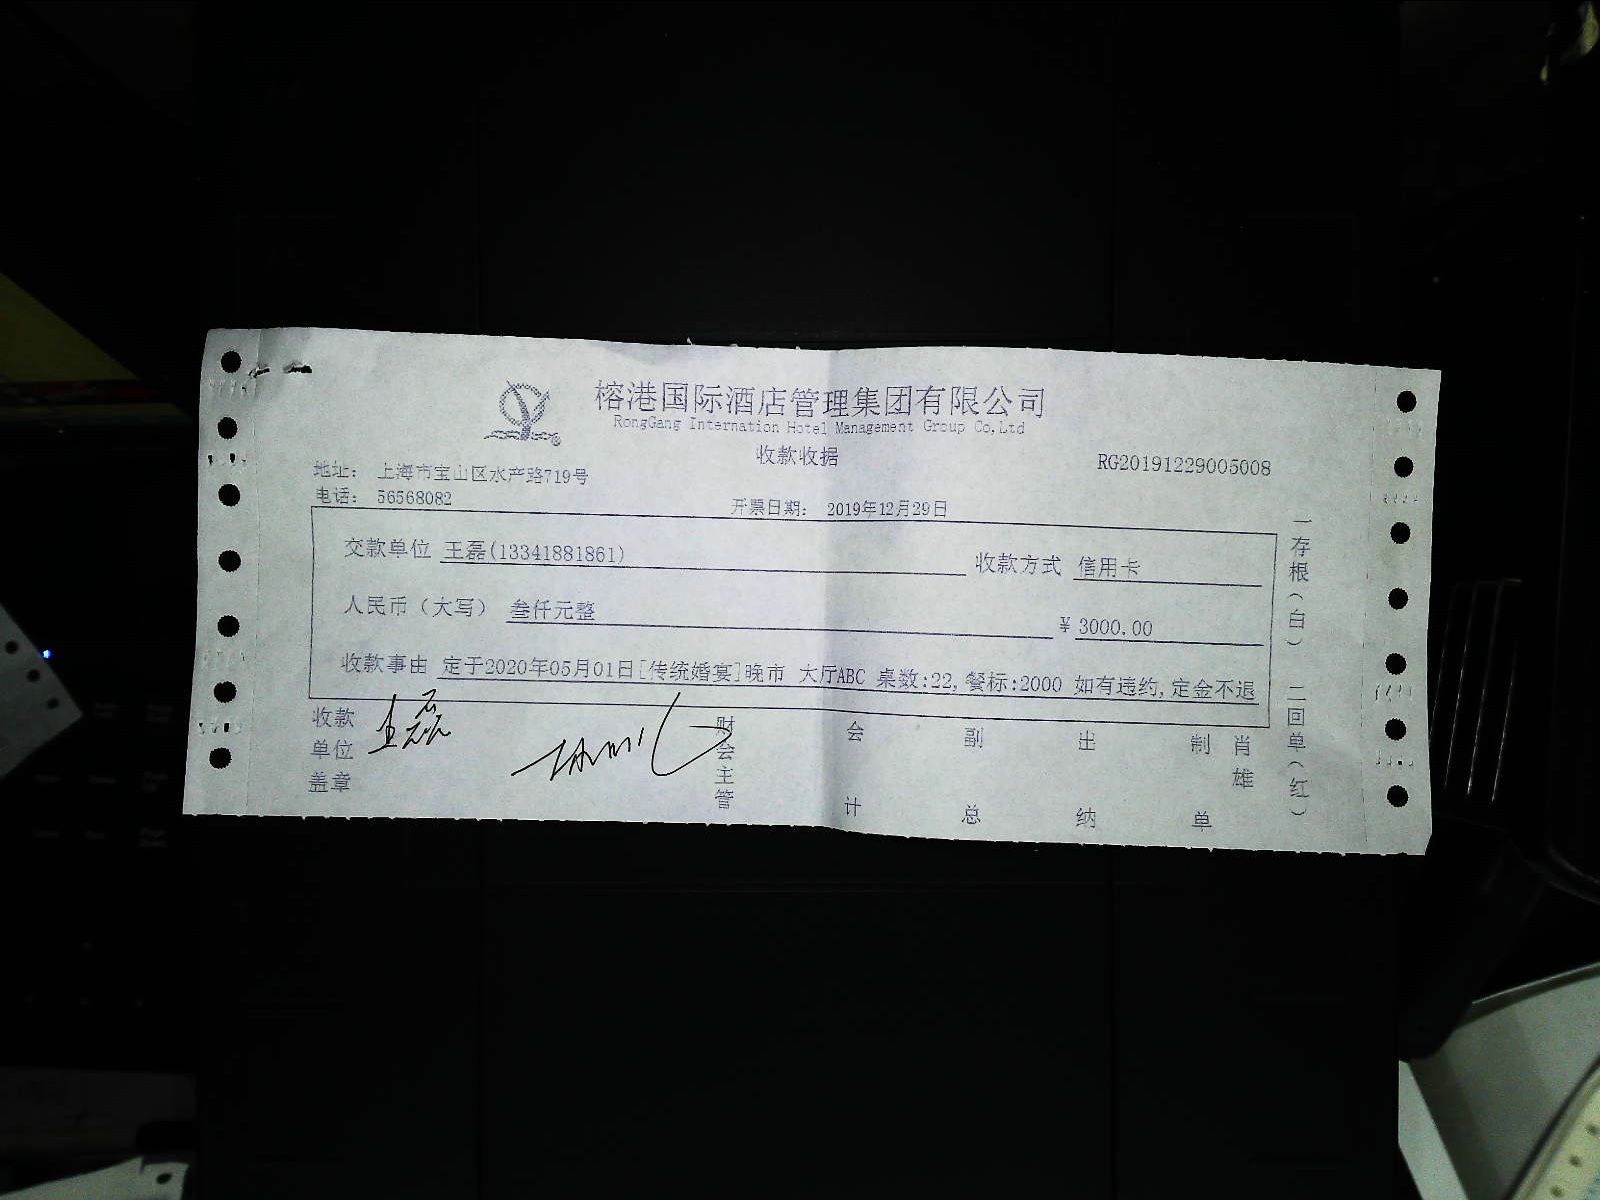 榕港国际酒店管理集团有限公司
RongGang Internation Hotel Management Group Co,Ltd
收款收据
RG20191229005008
地址： 上海市宝山区水产路719号
电话： 56568082
开票日期： 2019年12月29日
交款单位 王磊(13341881861) 收款方式 信用卡
人民币（大写） 叁仟元整 ¥3000.00
收款事由 定于2020年05月01日[传统婚宴]晚市 大厅ABC 桌数:22,餐标:2000 如有违约,定金不退
收款单位盖章 王磊
财会主管 会计 副总 出纳 制单 肖雄
一存根（白） 二回单（红）